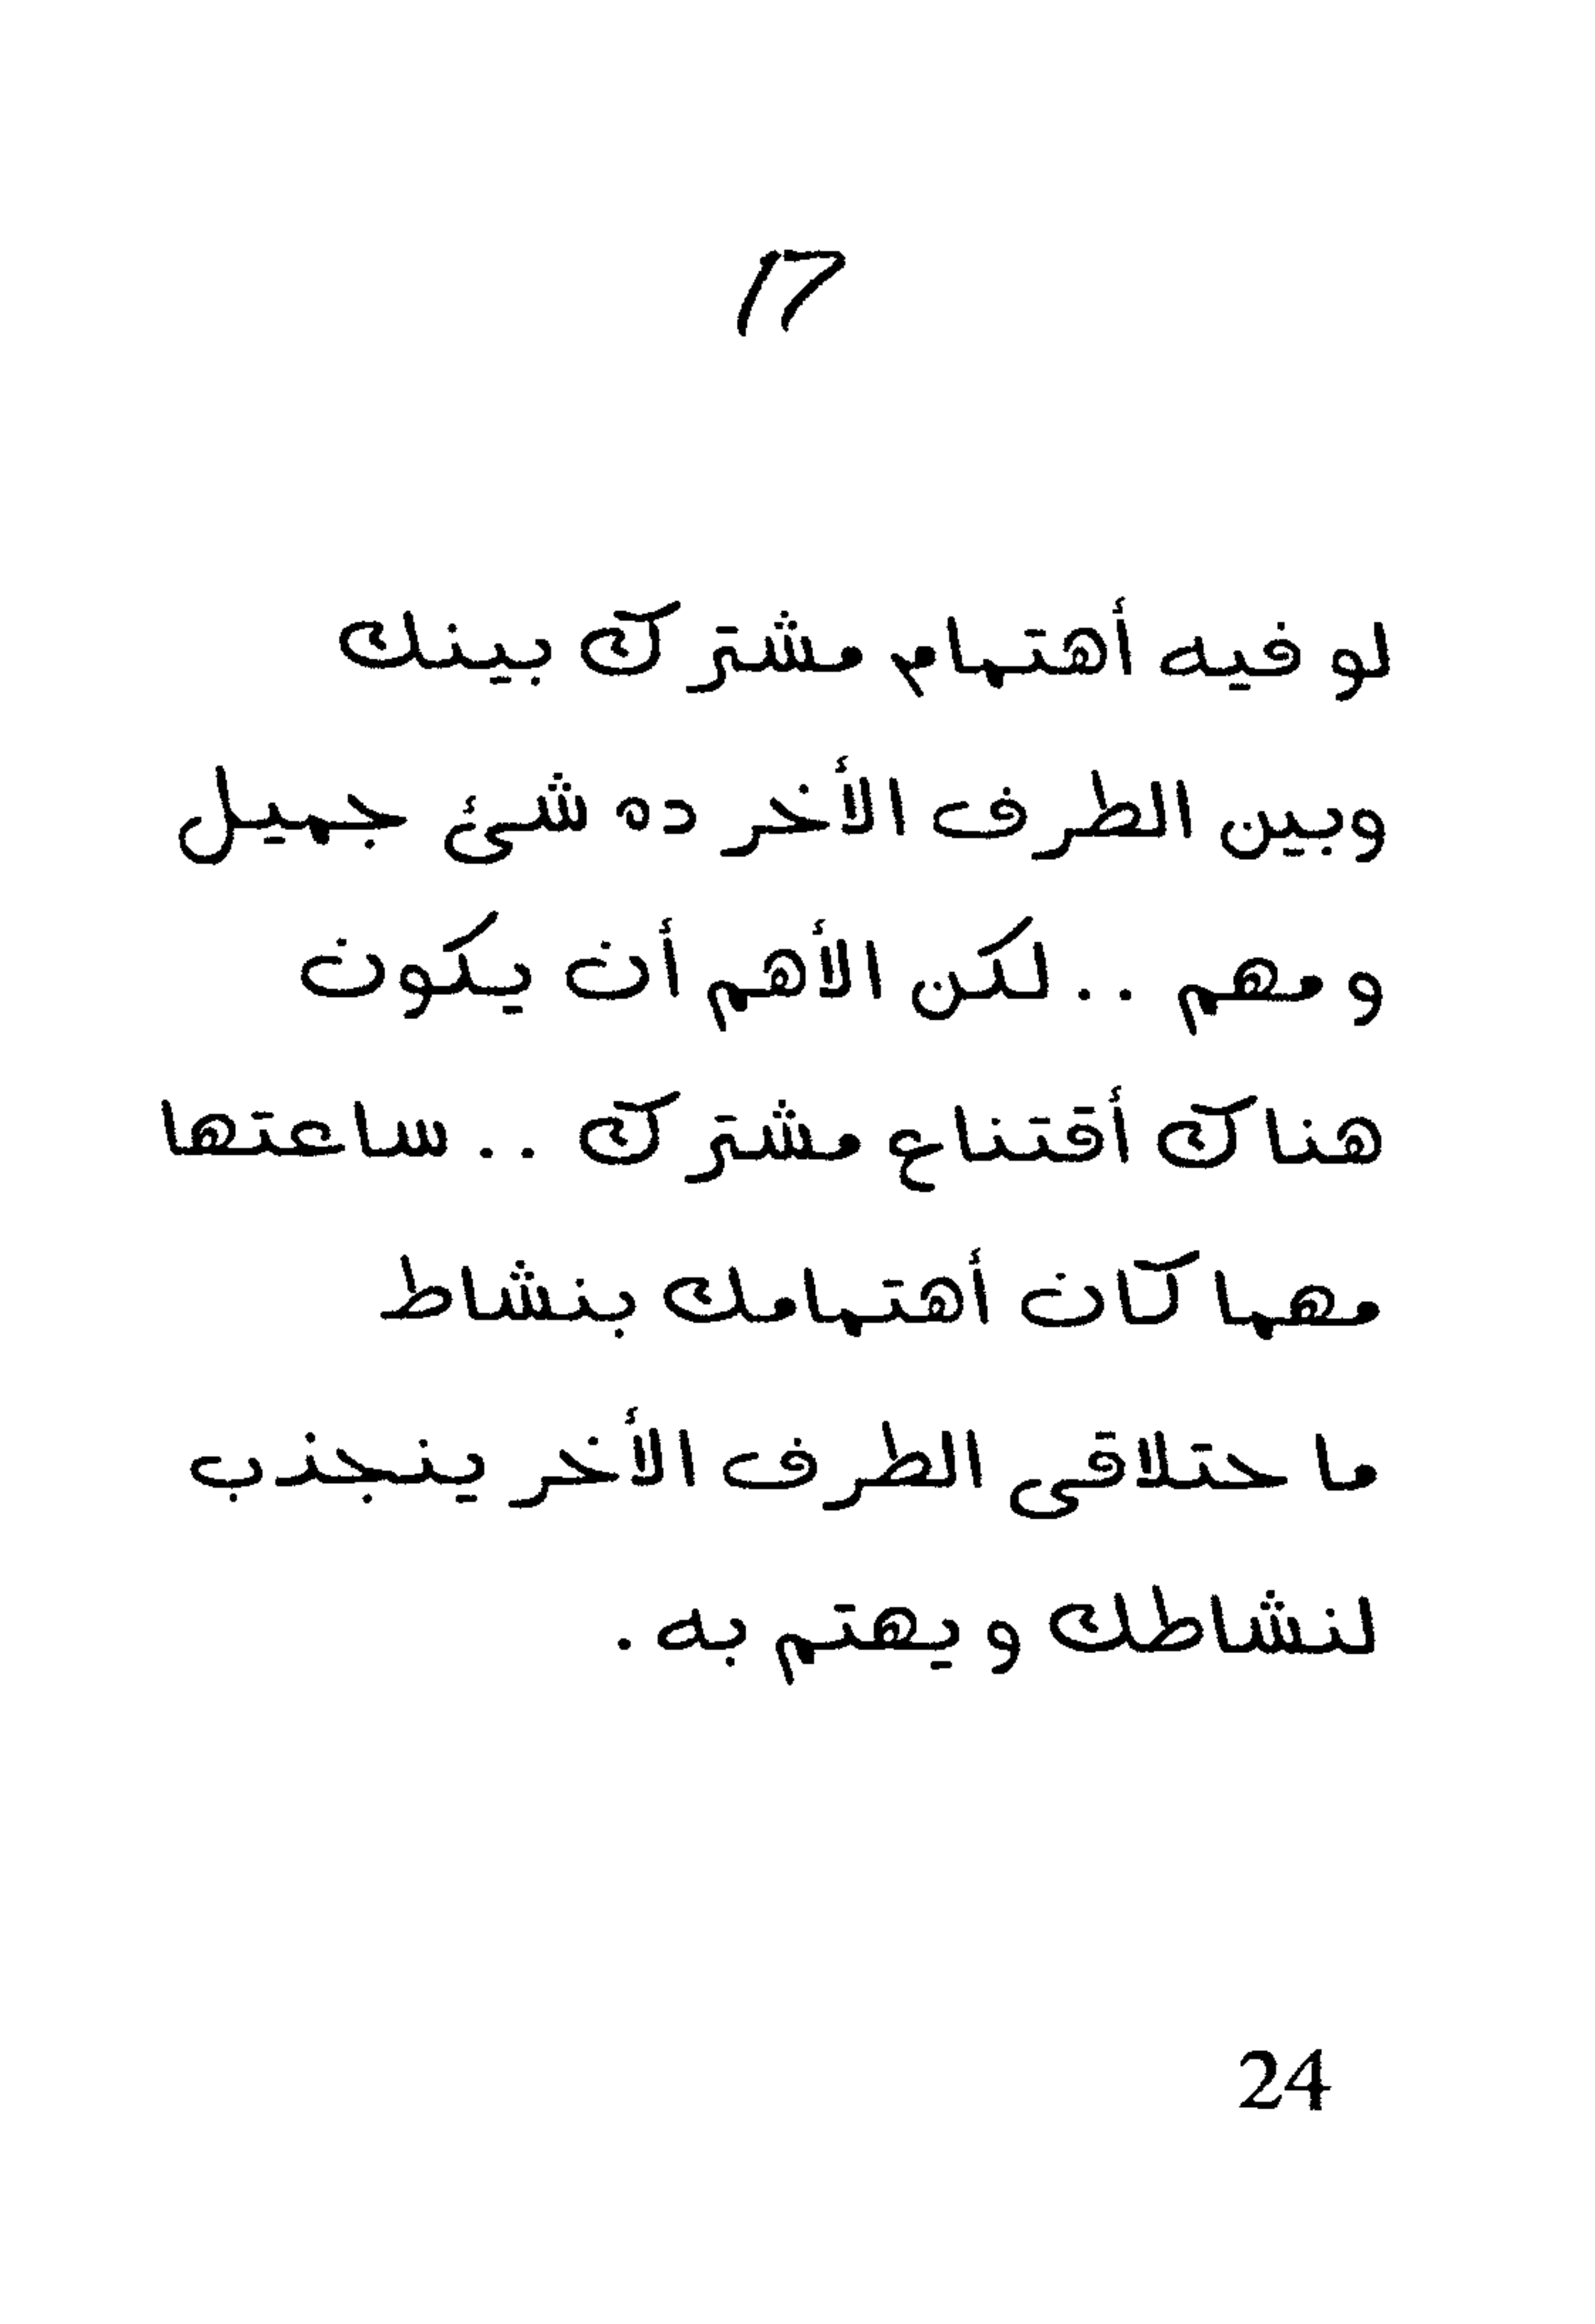 17
لو فيه أهتمام مشترك بينك
وبين الطرف الأخر ده شئ جميل
ومهم .. لكن الأهم أن يكون
هناك أقتناع مشترك .. ساعتها
مهما كان أهتمامك بنشاط
ما حتلاقى الطرف الأخر ينجذب
لنشاطك ويهتم به .
24